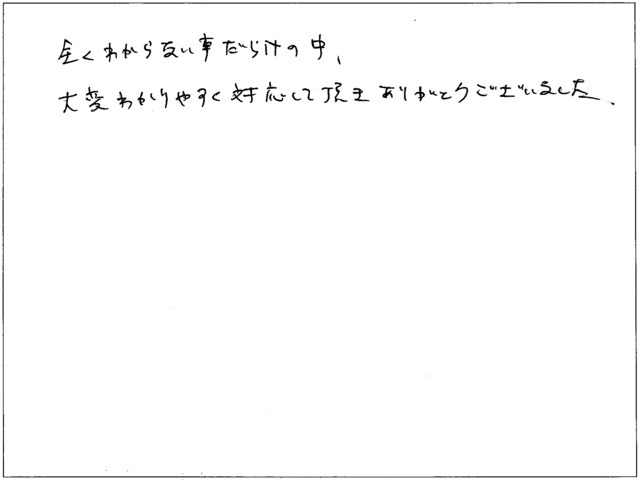 全くわからない事だらけの中、
大変わかりやすく対応して頂きありがとうございました。